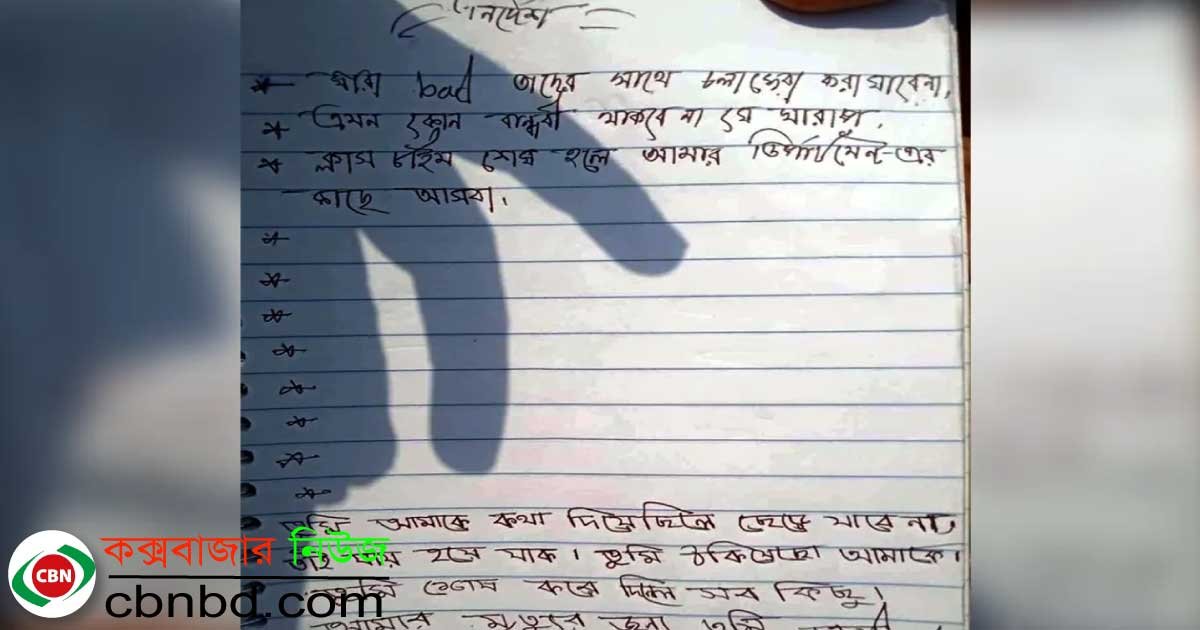 নির্দেশ
* যারা bad তাদের সাথে চলাফেরা করা যাবেনা,
* এমন কোন বান্ধবী থাকবে না যে খারাপ.
* ক্লাস টাইম শেষ হলে আমার ডিপার্টমেন্ট-এর
কাছে আসবা.
*
*
*
*
*
*
*
*
তুমি আমাকে কথা দিয়েছিলে ছেড়ে যাবে না,
হয়ে যাক। তুমি ঠকিয়েছো আমাকে।
শেষ করে দিলে সব কিছু।
আমার মৃত্যুর জন্য তুমি
CBN
কক্সবাজার নিউজ
cbnbd.com